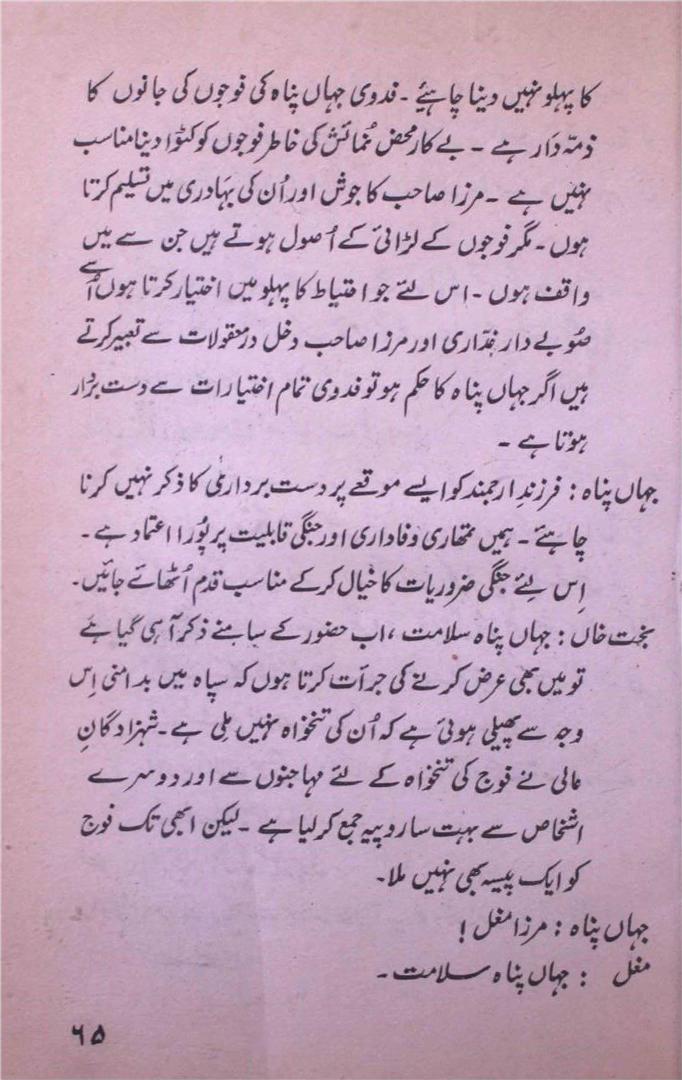 کا پہلو نہیں دینا چاہیئے ۔ فدوی جہاں پناہ کی فوجوں کی جانوں کا
ذمّہ دَار ہے ۔ بے کار محض نُمائش کی خاطر فوجوں کو کٹوا دینا مناسب
نہیں ہے ۔ مرزا صاحب کا جوش اور اُن کی بہَادری میں تسلیم کرتا
ہوں ۔ مگر فوجوں کے لڑائی کے اُصول ہوتے ہیں جن سے میں
واقف ہوں ۔ اس لئے جو احتیاط کا پہلو میں اختیار کرتا ہوں اُسے
صُوبے دار غدّاری اور مرزا صاحب دخل در معقولات سے تعبیر کرتے
ہیں اگر جہاں پناہ کا حکم ہو تو فدوی تمام اختیارات سے دست بردار
ہوتا ہے ۔
جہاں پناہ : فرزندِ ارجمند کو ایسے موقعے پر دست برداری کا ذکر نہیں کرنا
چاہئے ۔ ہمیں تمھاری وفاداری اور جنگی قابلیت پر پُورا اعتماد ہے ۔
اِس لئے جنگی ضروریات کا خیال کر کے مناسب قدم اُٹھائے جائیں ۔
بخت خاں : جہاں پناہ سلامت ، اب حضور کے سامنے ذکر آ ہی گیا ہے
تو میں بھی عرض کرنے کی جرأت کرتا ہوں کہ سپاہ میں بدامنی اِس
وجہ سے پھیلی ہوئی ہے کہ اُن کی تنخواہ نہیں ملی ہے ۔ شہزادگانِ
عالی نے فوج کی تنخواہ کے لئے مہاجنوں سے اور دوسرے
اشخاص سے بہت سا روپیہ جمع کر لیا ہے ۔ لیکن ابھی تک فوج
کو ایک پیسہ بھی نہیں ملا ۔
جہاں پناہ : مرزا مغل !
مغل : جہاں پناہ سلامت ۔
۶۵